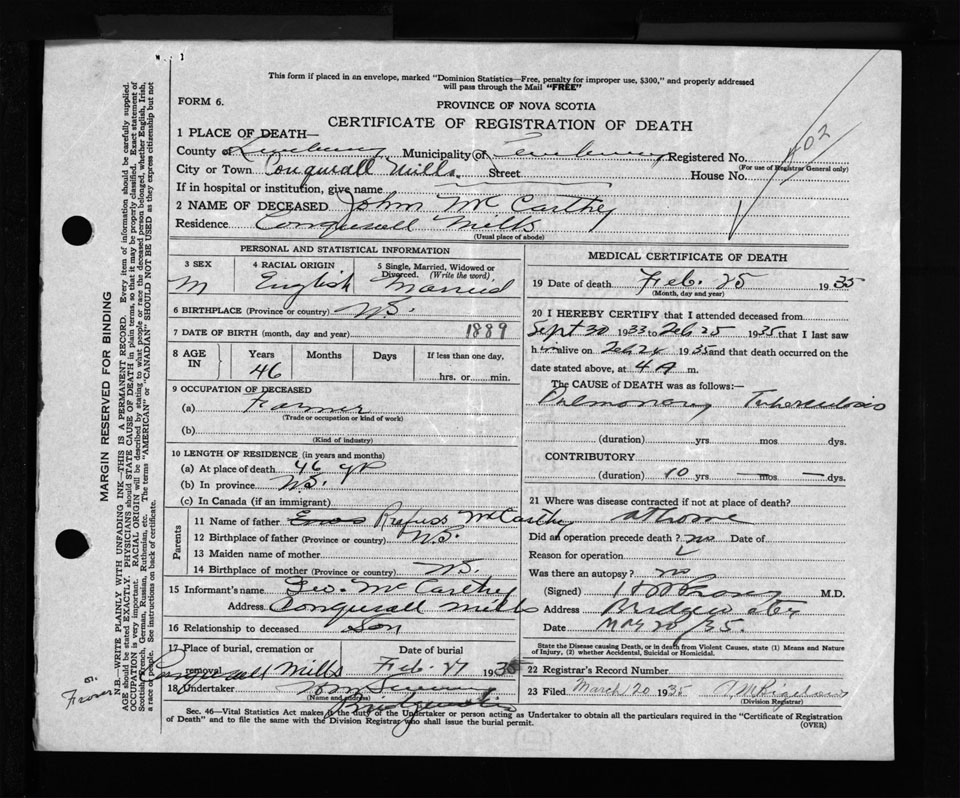 This form if placed in an envelope, marked "Dominion Statistics—Free, penalty for improper use, $300," and properly addressed
will pass through the Mail "FREE"
FORM 6.
PROVINCE OF NOVA SCOTIA
CERTIFICATE OF REGISTRATION OF DEATH
1 PLACE OF DEATH—
County of Lunenburg Municipality of Lunenburg Registered No.
(For use of Registrar General only)
402
City or Town Conquerall Mills Street House No.
If in hospital or institution, give name
2 NAME OF DECEASED John McCarthy
Residence Conquerall Mills
(Usual place of abode)
PERSONAL AND STATISTICAL INFORMATION
3 SEX 4 RACIAL ORIGIN 5 Single, Married, Widowed or
Divorced. (Write the word)
M English Married
6 BIRTHPLACE (Province or country) N.S.
7 DATE OF BIRTH (month, day and year) 1889
8 AGE IN Years Months Days If less than one day.
46 hrs. or min.
9 OCCUPATION OF DECEASED
(a) Farmer
(Trade or occupation or kind of work)
(b)
(Kind of industry)
10 LENGTH OF RESIDENCE (in years and months)
(a) At place of death 46 yr
(b) In province N.S.
(c) In Canada (if an immigrant)
Parents
11 Name of father Enos Rufuss McCarthy
12 Birthplace of father (Province or country) N.S.
13 Maiden name of mother
14 Birthplace of mother (Province or country) N.S.
15 Informant's name Geo. McCarthy
Address Conquerall Mills
16 Relationship to deceased Son
17 Place of burial, cremation or removal Date of burial
Conquerall Mills Feb. 27 1935
18 Undertaker
(Name and address)
Bridgewater
MEDICAL CERTIFICATE OF DEATH
19 Date of death Feb. 25 1935
(Month, day and year)
20 I HEREBY CERTIFY that I attended deceased from
Sept 30 1933 to Feb 25 1935 that I last saw
him alive on Feb 24 1935 and that death occurred on the
date stated above, at 4 A m.
The CAUSE of DEATH was as follows:—
Pulmonary Tuberculosis
(duration) yrs mos dys.
CONTRIBUTORY
(duration) 10 yrs — mos — dys.
21 Where was disease contracted if not at place of death?
at home
Did an operation precede death? no Date of
Reason for operation
Was there an autopsy? no
(Signed) M.D.
Address Bridgewater
Date May 20/35.
State the Disease causing Death, or in death from Violent Causes, state (1) Means and
Nature of Injury, (2) whether Accidental, Suicidal or Homicidal.
22 Registrar's Record Number
23 Filed March 20 1935
(Division Registrar)
Sec. 46—Vital Statistics Act makes it the duty of the Undertaker or person acting as Undertaker to obtain all the particulars required in the "Certificate of Registration
of Death" and to file the same with the Division Registrar who shall issue the burial permit.
(OVER)
MARGIN RESERVED FOR BINDING
N.B.—WRITE PLAINLY WITH UNFADING INK—THIS IS A PERMANENT RECORD. Every item of information should be carefully supplied.
AGE should be stated EXACTLY. PHYSICIANS should STATE CAUSE OF DEATH in plain terms, so that it may be properly classified. Exact statement of
OCCUPATION is very important. RACIAL ORIGIN will be described by stating to what people or race the deceased person belonged, whether English, Irish,
Scottish, French, German, Russian, Ruthenian, etc. The terms "AMERICAN" or "CANADIAN" SHOULD NOT BE USED as they express citizenship but not
a race or people. See instructions on back of certificate.